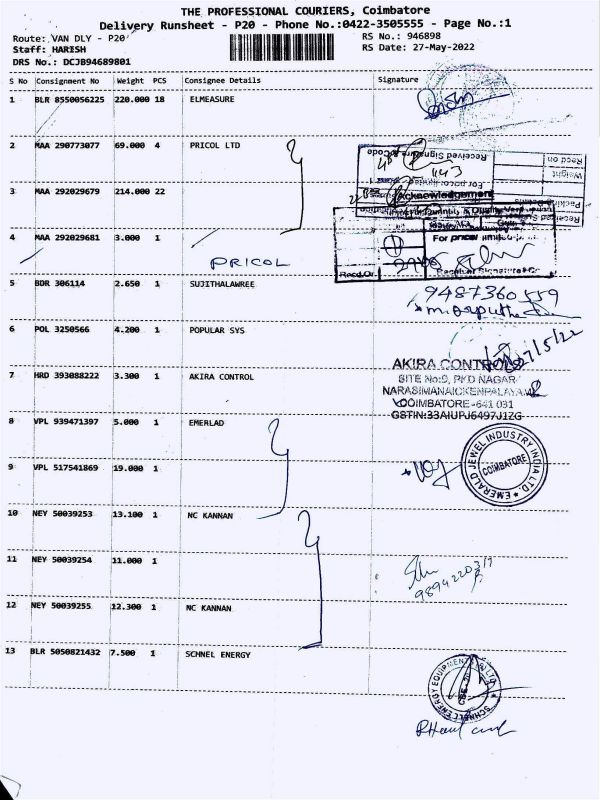 THE PROFESSIONAL COURIERS, Coimbatore
Delivery Runsheet - P20 - Phone No.:0422-3505555 - Page No.:1
Route: VAN DLY - P20
RS No.: 946898
Staff: HARISH
RS Date: 27-May-2022
DRS No.: DCJB94689801
S No Consignment No Weight PCS Consignee Details Signature
1 BLR 8550056225 220.000 18 ELMEASURE
2 MAA 290773077 69.000 4 PRICOL LTD
Received Signature & Code
Recd on
Weight
For pricol limited
3 MAA 292029679 214.000 22
Acknowledgement
4 MAA 292029681 3.000 1
PRICOL
For pricol limited
Recd.On
5 BDR 306114 2.650 1 SUJITHALAWREE
9487360559
6 POL 3250566 4.200 1 POPULAR SYS
27/5/22
AKIRA CONTROLS
7 HRD 393088222 3.300 1 AKIRA CONTROL
SITE No:9, PKD NAGAR
NARASIMANAICKENPALAYAM
COIMBATORE-641 031
GSTIN:33AIUPJ6497J1ZG
8 VPL 939471397 5.000 1 EMERLAD
EMERALD JEWEL INDUSTRY INDIA LTD.
COIMBATORE
9 VPL 517541869 19.000 1
10 NEY 50039253 13.100 1 NC KANNAN
11 NEY 50039254 11.000 1
12 NEY 50039255 12.300 1 NC KANNAN
13 BLR 5050821432 7.500 1 SCHNEL ENERGY
SCHNELL ENERGY EQUIPMENTS (P) LTD